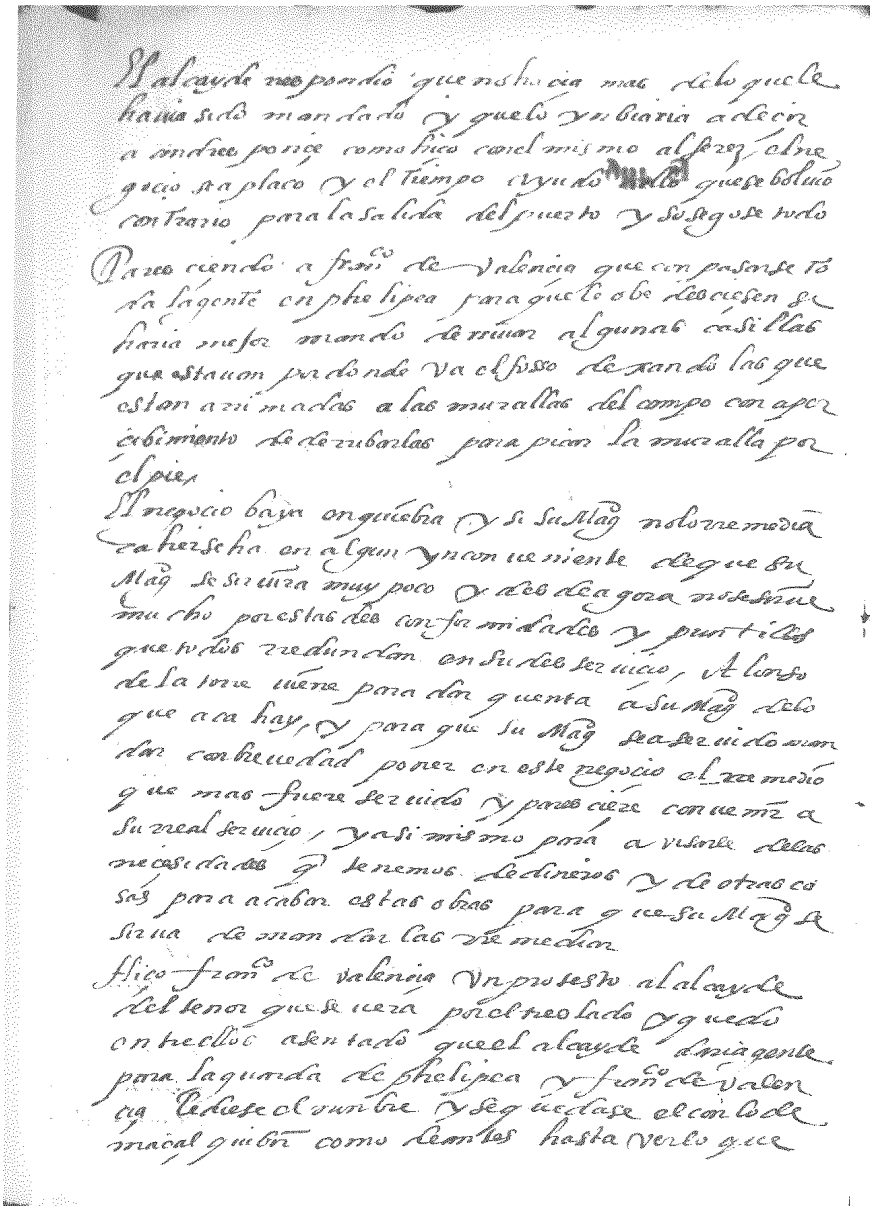 El alcayde respondio que no hacia mas delo que le
havia sido mandado y que lo ynbiaria a decir
a andres ponce como hiço con el mismo alferez, el ne
gocio se aplacó y el tiempo ayudo que se bolvio
contrario para la salida del puerto y sosegose todo
Pareciendo a franco de Valencia que con pasarse to
da la gente en phelipea para que le obedesciesen se
haria mejor mando derriuar algunas casillas
que estauan por donde va el fosso dexando las que
estan arrimadas a las murallas del campo con aper
cibimiento de derribarlas para picar la muralla por
el pie,
El negocio baya en quiebra y si su Magd no lo rremedia
caherse ha en algun ynconueniente de que su
Magd se seruira muy poco y desde agora no se sirue
mucho por estas desconformidades y puntillos
que todos rredundan en su desseruicio, Alonso
de la torre uiene para dar quenta a su Magd delo
que aca hay, y para que su Magd sea seruido man
dar con breuedad poner en este negocio el rremedio
que mas fuere seruido y paresciere convenir a
su rreal seruicio, y asi mismo para avisarle delas
necesidades q tenemos de dineros y de otras co
sas para acabar estas obras para que su Magd se
sirua de mandarlas rremediar
Hiço franco de valencia un protesto al alcayde
del tenor que se uera por el treslado y quedo
entrellos asentado que el alcayde daria gente
para la guarda de phelipea y franco de valen
cia le diese el nunbre y se quedase el con lo de
maçalquibir como deantes hasta verlo que